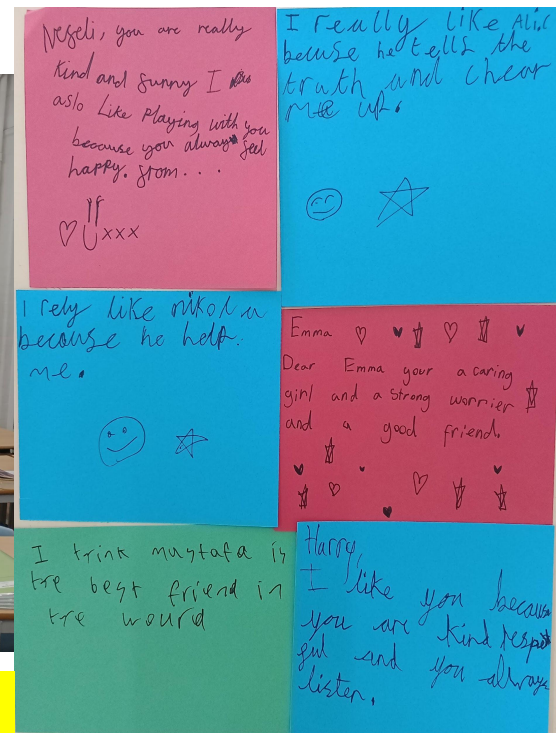 Neseli, you are really
kind and sunny I
aslo Like Playing with you
because you always feel
happy. from...
xxx
I really like Ali.c
becuse he tells the
truth and chear
me up.
I rely like nikola
becouse he help.
me.
Emma
Dear Emma your a caring
girl and a strong worrier
and a good friend.
I trink mustafa is
tre best friend in
tre wourd
Harry,
I like you because
you are kind respect
ful and you always
listen.